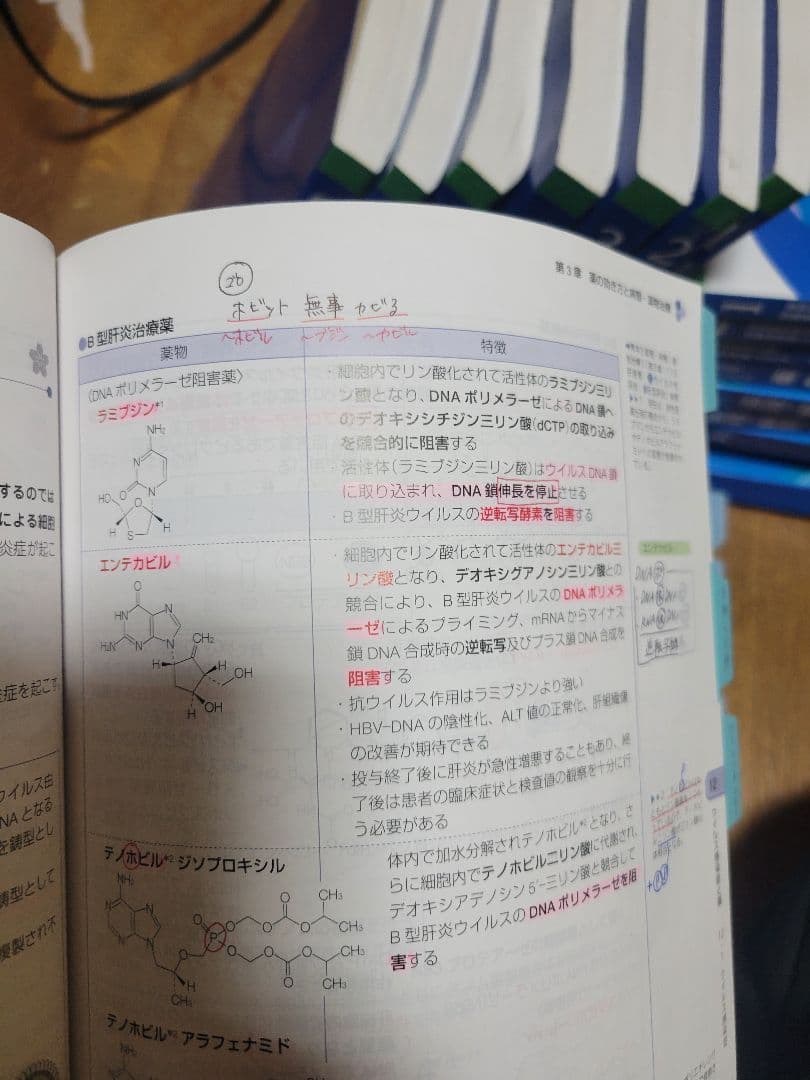 第3章 薬の効き方と病態・薬物治療
26
ホビット 無事 カビる
~ホビル ~ブジン ~カビル
●B型肝炎治療薬
薬物
特徴
〈DNAポリメラーゼ阻害薬〉
ラミブジン*1
NH₂
N
HO
O
N
O
H
S
H
・細胞内でリン酸化されて活性体のラミブジン三リ
ン酸となり、DNAポリメラーゼによるDNA鎖へ
のデオキシシチジン三リン酸(dCTP)の取り込み
を競合的に阻害する
・活性体(ラミブジン三リン酸)はウイルスDNA鎖
に取り込まれ、DNA鎖伸長を停止させる
・B型肝炎ウイルスの逆転写酵素を阻害する
エンテカビル
O
HN
N
H₂N
N
N
CH₂
H
H
OH
H
OH
・細胞内でリン酸化されて活性体のエンテカビル三
リン酸となり、デオキシグアノシン三リン酸との
競合により、B型肝炎ウイルスのDNAポリメラ
ーゼによるプライミング、mRNAからマイナス
鎖DNA合成時の逆転写及びプラス鎖DNA合成を
阻害する
・抗ウイルス作用はラミブジンより強い
・HBV-DNAの陰性化、ALT値の正常化、肝組織像
の改善が期待できる
・投与終了後に肝炎が急性増悪することもあり、終
了後は患者の臨床症状と検査値の観察を十分に行
う必要がある
テノホビル*2 ジソプロキシル
NH₂
N
N
N
N
O
P
O
O
O
O
CH₃
CH₃
O
O
O
O
O
CH₃
CH₃
H
CH₃
体内で加水分解されテノホビル*2となり、さ
らに細胞内でテノホビル二リン酸に代謝され、
デオキシアデノシン5'-三リン酸と競合して
B型肝炎ウイルスのDNAポリメラーゼを阻
害する
テノホビル*2 アラフェナミド
NH₂
エンテカビル
するのでは
による細胞
炎症が起こ
炎症を起こす
ウイルス白
NAとなる
を鋳型とし
鋳型として
複製され不